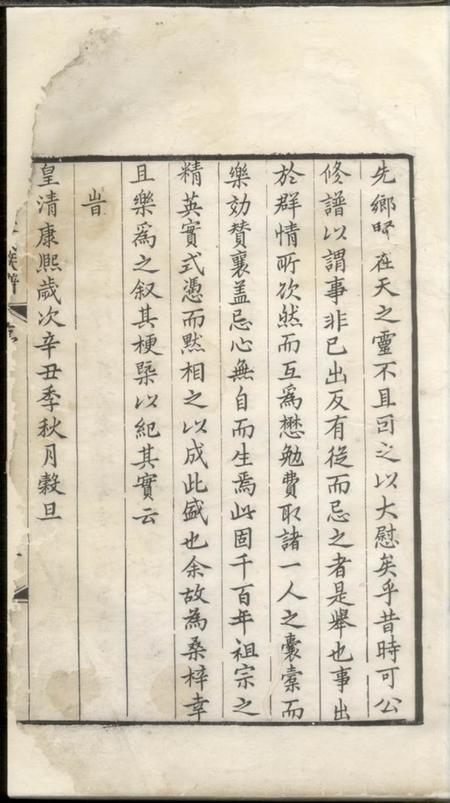 先鄉賢在天之靈不且可之以大慰矣乎昔時可公
修譜以謂事非已出反有從而忌之者是舉也事出
於群情所欲然而互爲懋勉費取諸一人之囊橐而
樂効贊襄盖忌心無自而生焉此固千百年祖宗之
精英實式憑而默相之以成此盛也余故為桑梓幸
且樂爲之叙其梗槩以紀其實云
旹
皇清康熙歲次辛丑季秋月穀旦
族譜
序